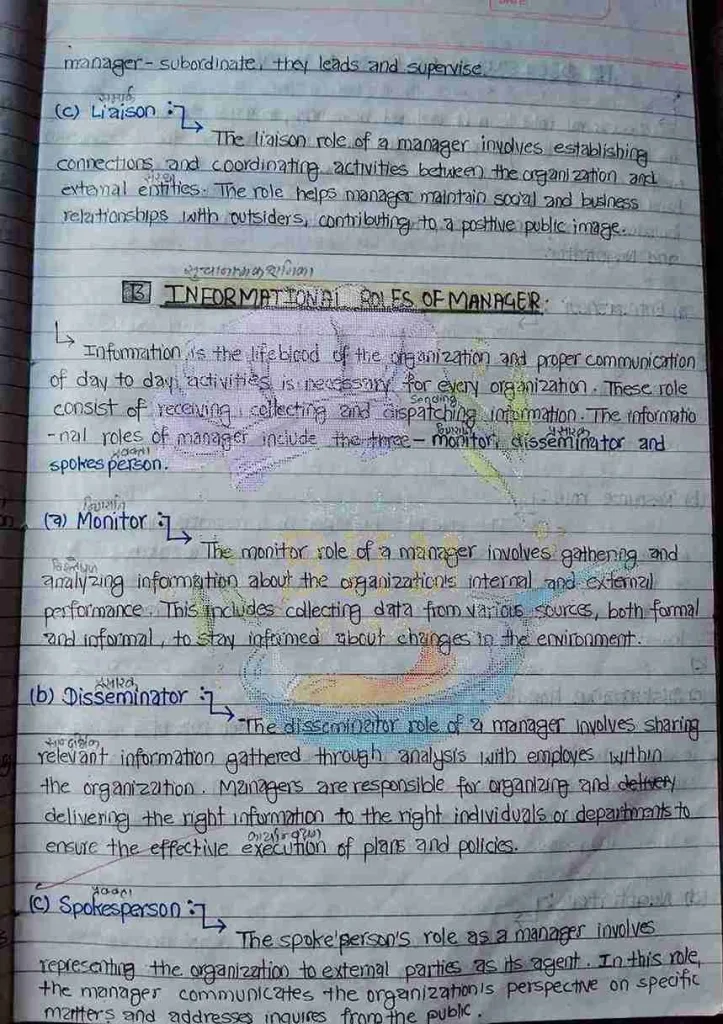 manager - subordinate, they leads and supervise.
सम्पर्क
(c) Liaison :
The liaison role of a manager involves establishing
connections and coordinating activities between the organization and
संस्था
external entities. The role helps manager maintain social and business
relationships with outsiders, contributing to a positive public image.
B INFORMATIONAL ROLES OF MANAGER:
Information is the lifeblood of the organization and proper communication
of day to day activities is necessary for every organization. These role
Sending
consist of receiving, collecting and dispatching information. The informatio
-nal roles of manager include the three - monitor, disseminator and
प्रवक्ता
spokesperson.
(a) Monitor :
The monitor role of a manager involves gathering and
विश्लेषण
analyzing information about the organization's internal and external
performance. This includes collecting data from various sources, both formal
and informal, to stay informed about changes in the environment.
प्रसारक
(b) Disseminator :
The disseminator role of a manager involves sharing
relevant information gathered through analysis with employes within
the organization. Managers are responsible for organizing and delivery
delivering the right information to the right individuals or departments to
कार्यान्वयन
ensure the effective execution of plans and policies.
प्रवक्ता
(c) Spokesperson :
The spoke'person's role as a manager involves
representing the organization to external parties as its agent. In this role,
the manager communicates the organization's perspective on specific
matters and addresses inquires from the public.